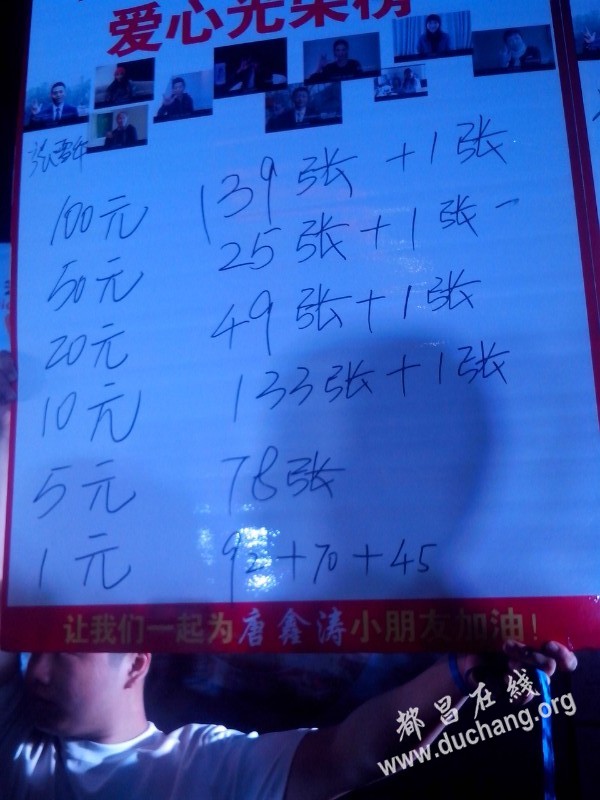 爱心光荣榜
100元 139张+1张
50元 25张+1张
20元 49张+1张
10元 133张+1张
5元 78张
1元 92+70+45
让我们一起为唐鑫涛小朋友加油!
都昌在线
www.duchang.org